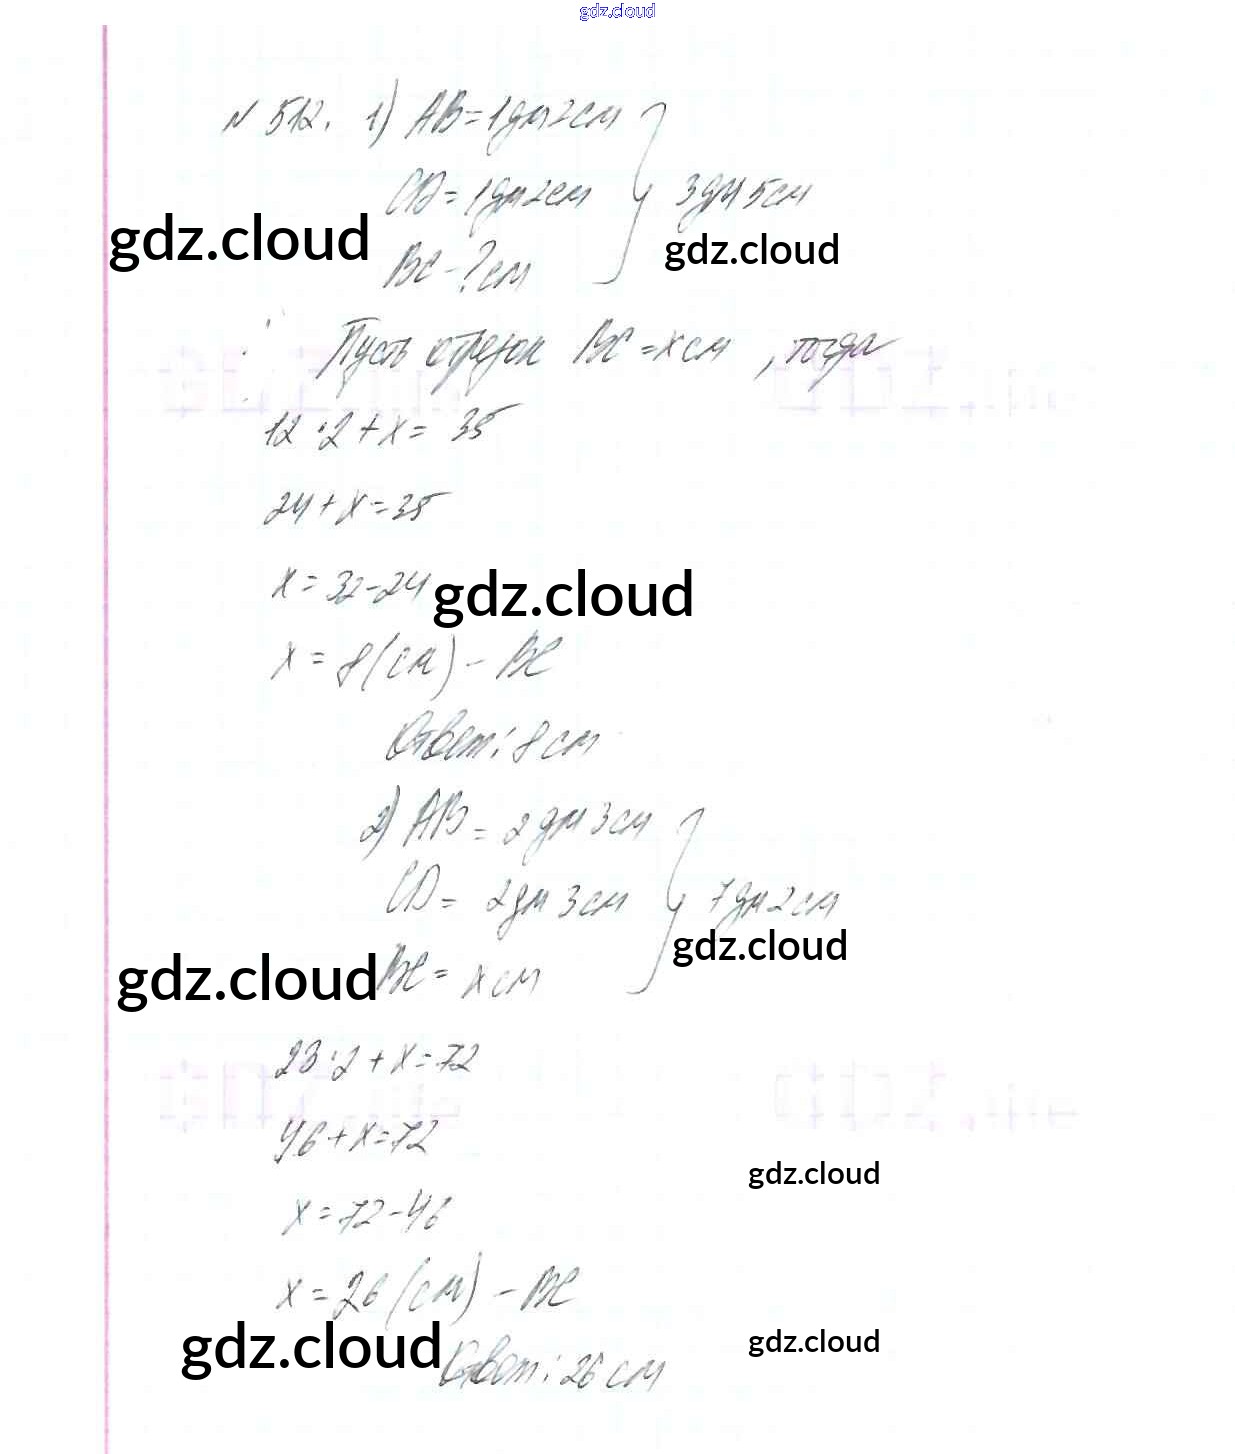 gdz.cloud
№ 512. 1) AB = 1дм 2см
CD = 1дм 2см } 3дм 5см
gdz.cloud
gdz.cloud
BC - ? см
Пусть отрезок BC = x см, тогда
12·2 + x = 35
24 + x = 35
x = 32 - 24
gdz.cloud
x = 8 (см) - BC
Ответ: 8 см
2) AB = 2 дм 3 см
CD = 2дм 3 см } 7дм 2 см
gdz.cloud
gdz.cloud
BC = x см
23·2 + x = 72
46 + x = 72
gdz.cloud
x = 72 - 46
x = 26 (см) - BC
gdz.cloud
gdz.cloud
Ответ: 26 см